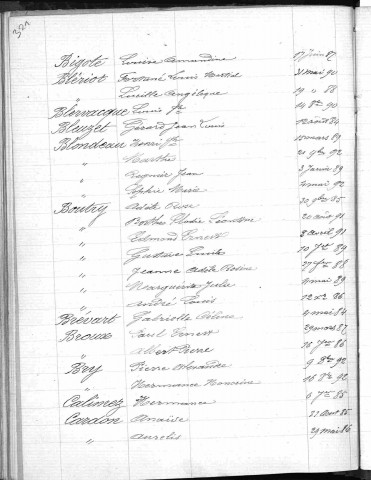 321
Bigote Louise Amandine 17 Juin 87
Blériot Fortuné Louis Martial 31 mai 90
" Lucille Angélique 19 " 88
Blervacque Louis Fs 14 8bre 90
Bleuzet Gérard Jean Louis 12 août 84
Blondeau Henri Fs 15 mars 89
" Marthe 21 9bre 92
" Jean 3 Janvr 89
" Sophie Marie 2 mai 92
Boutry Adèle 30 9bre 85
" Berthe Élodie 20 août 91
" Edmond Ernest 8 avril 91
" Gustave Émile 10 7bre 84
" Jeanne Adèle Rosine 27 fer 88
" Marguerite Julie 4 mai 89
" André Louis 12 Xbre 86
Brévart Gabrielle 4 mai 84
Broux Paul Ernest 29 mars 87
" Albert Pierre 26 7bre 86
Bry Pierre Alexandre 9 8bre 92
" Hermance 16 8bre 92
Calimez Hermance 6 7bre 85
Cardon Anaïse 31 août 85
" Aurélie 29 mai 86